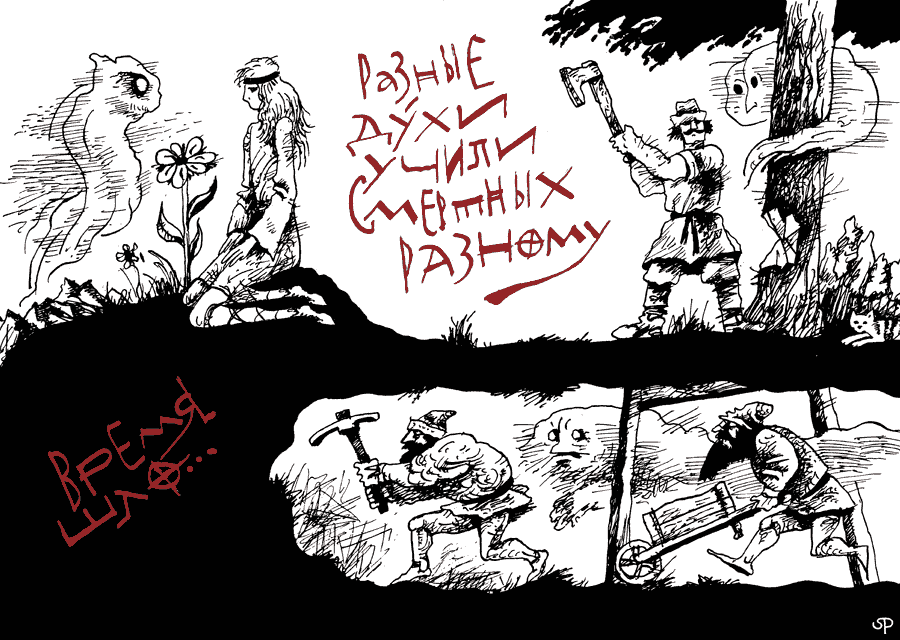 Разные
ду́хи
учили
смертных
разному
Время
шло...
SP